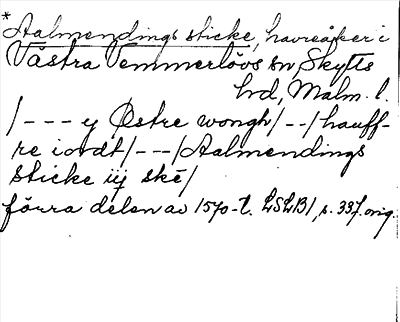 *
Aalmendings sticke, havreåker i
Västra Vemmerlövs sn, Skytts
hd, Malm. l.
/ - - - y Østre wongh / - - / hauff-
re iordt / - - - / Aalmendings
sticke iij skē /
förra delen av 1570-t. LSLB1, s. 337. orig.